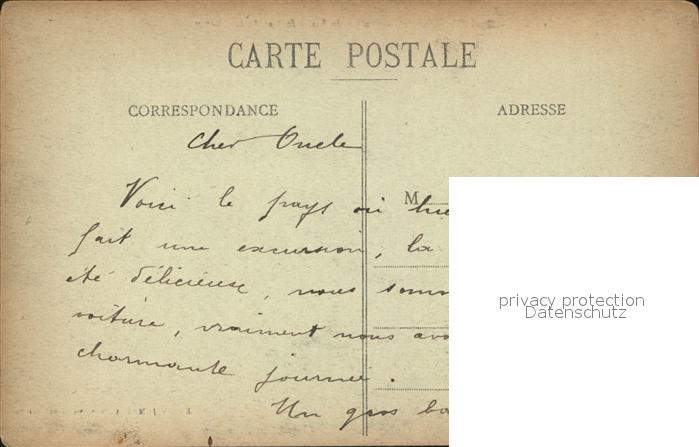 CARTE POSTALE
CORRESPONDANCE
ADRESSE
Cher Oncle
M
Voici le pays où
fait une excursion, la
été délicieuse, nous
voiture, vraiment nous
charmante journée.
Un gros
privacy protection
Datenschutz